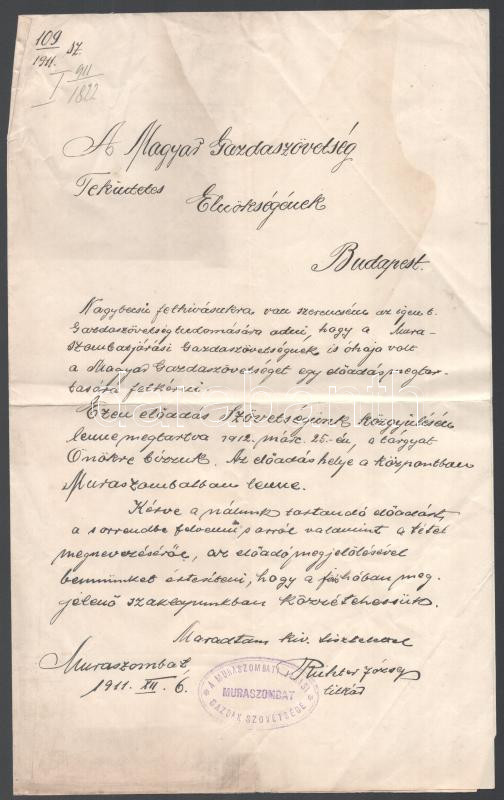 109
1911. sz.
I 911
1822
A Magyar Gazdaszövetség
Tekintetes Elnökségének
Budapest.
Nagybecsű felhívásukra van szerencsém az igen t.
Gazdaszövetség tudomására adni, hogy a Mura-
szombatjárási Gazdaszövetségnek is óhaja volt
a Magyar Gazdaszövetséget egy előadás megtar-
tására felkérni.
Ezen előadás Szövetségünk közgyűlésén
lenne megtartva 1912. márc. 25-én, a tárgyat
Önökre bízzuk. Az előadás helye a központban
Muraszombatban lenne.
Kérve a nálunk tartandó előadást
a sorrendbe felvenni s arról valamint a tétel
megnevezéséről, az előadó megjelölésével
bennünket értesíteni, hogy a f. hóban meg-
jelenő szaklapunkban közzétehessük.
Maradtam kiv. tisztelettel
Muraszombat, Richter József
1911. XII. 6. titkár
A MURASZOMBATI JÁRÁSI
MURASZOMBAT
GAZDÁK SZÖVETSÉGE
darabanth